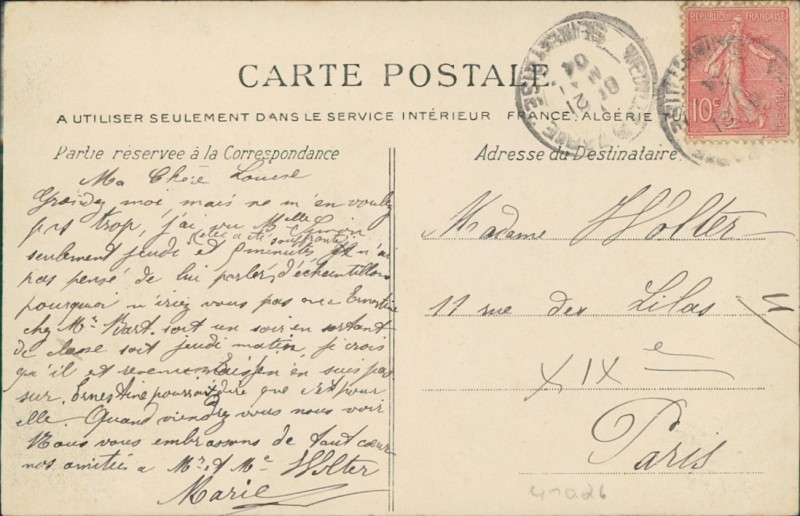 CARTE POSTALE
A UTILISER SEULEMENT DANS LE SERVICE INTÉRIEUR FRANCE, ALGÉRIE TU
Partie réservée à la Correspondance
Ma Chère Louise
Grondez moi, mais ne m'en voulez
pas trop, j'ai vu Melle
seulement jeudi et 5 minutes, je n'ai
elle a été souffrante
pas pensé de lui parler d'échantillons
pourquoi n'iriez vous pas avec Ernestine
chez Mr soit un soir en sortant
de classe soit jeudi matin, je crois
qu'il est revenu mais je n'en suis pas
sur. Ernestine pourrait dire que c'est pour
elle. Quand viendrez vous nous voir
Nous vous embrassons de tout cœur
nos amitiés a Mr et Me Wolter
Marie
Adresse du Destinataire.
Madame Wolter
11 rue des Lilas
XIXe
Paris
REPUBLIQUE FRANÇAISE
10c
04
21